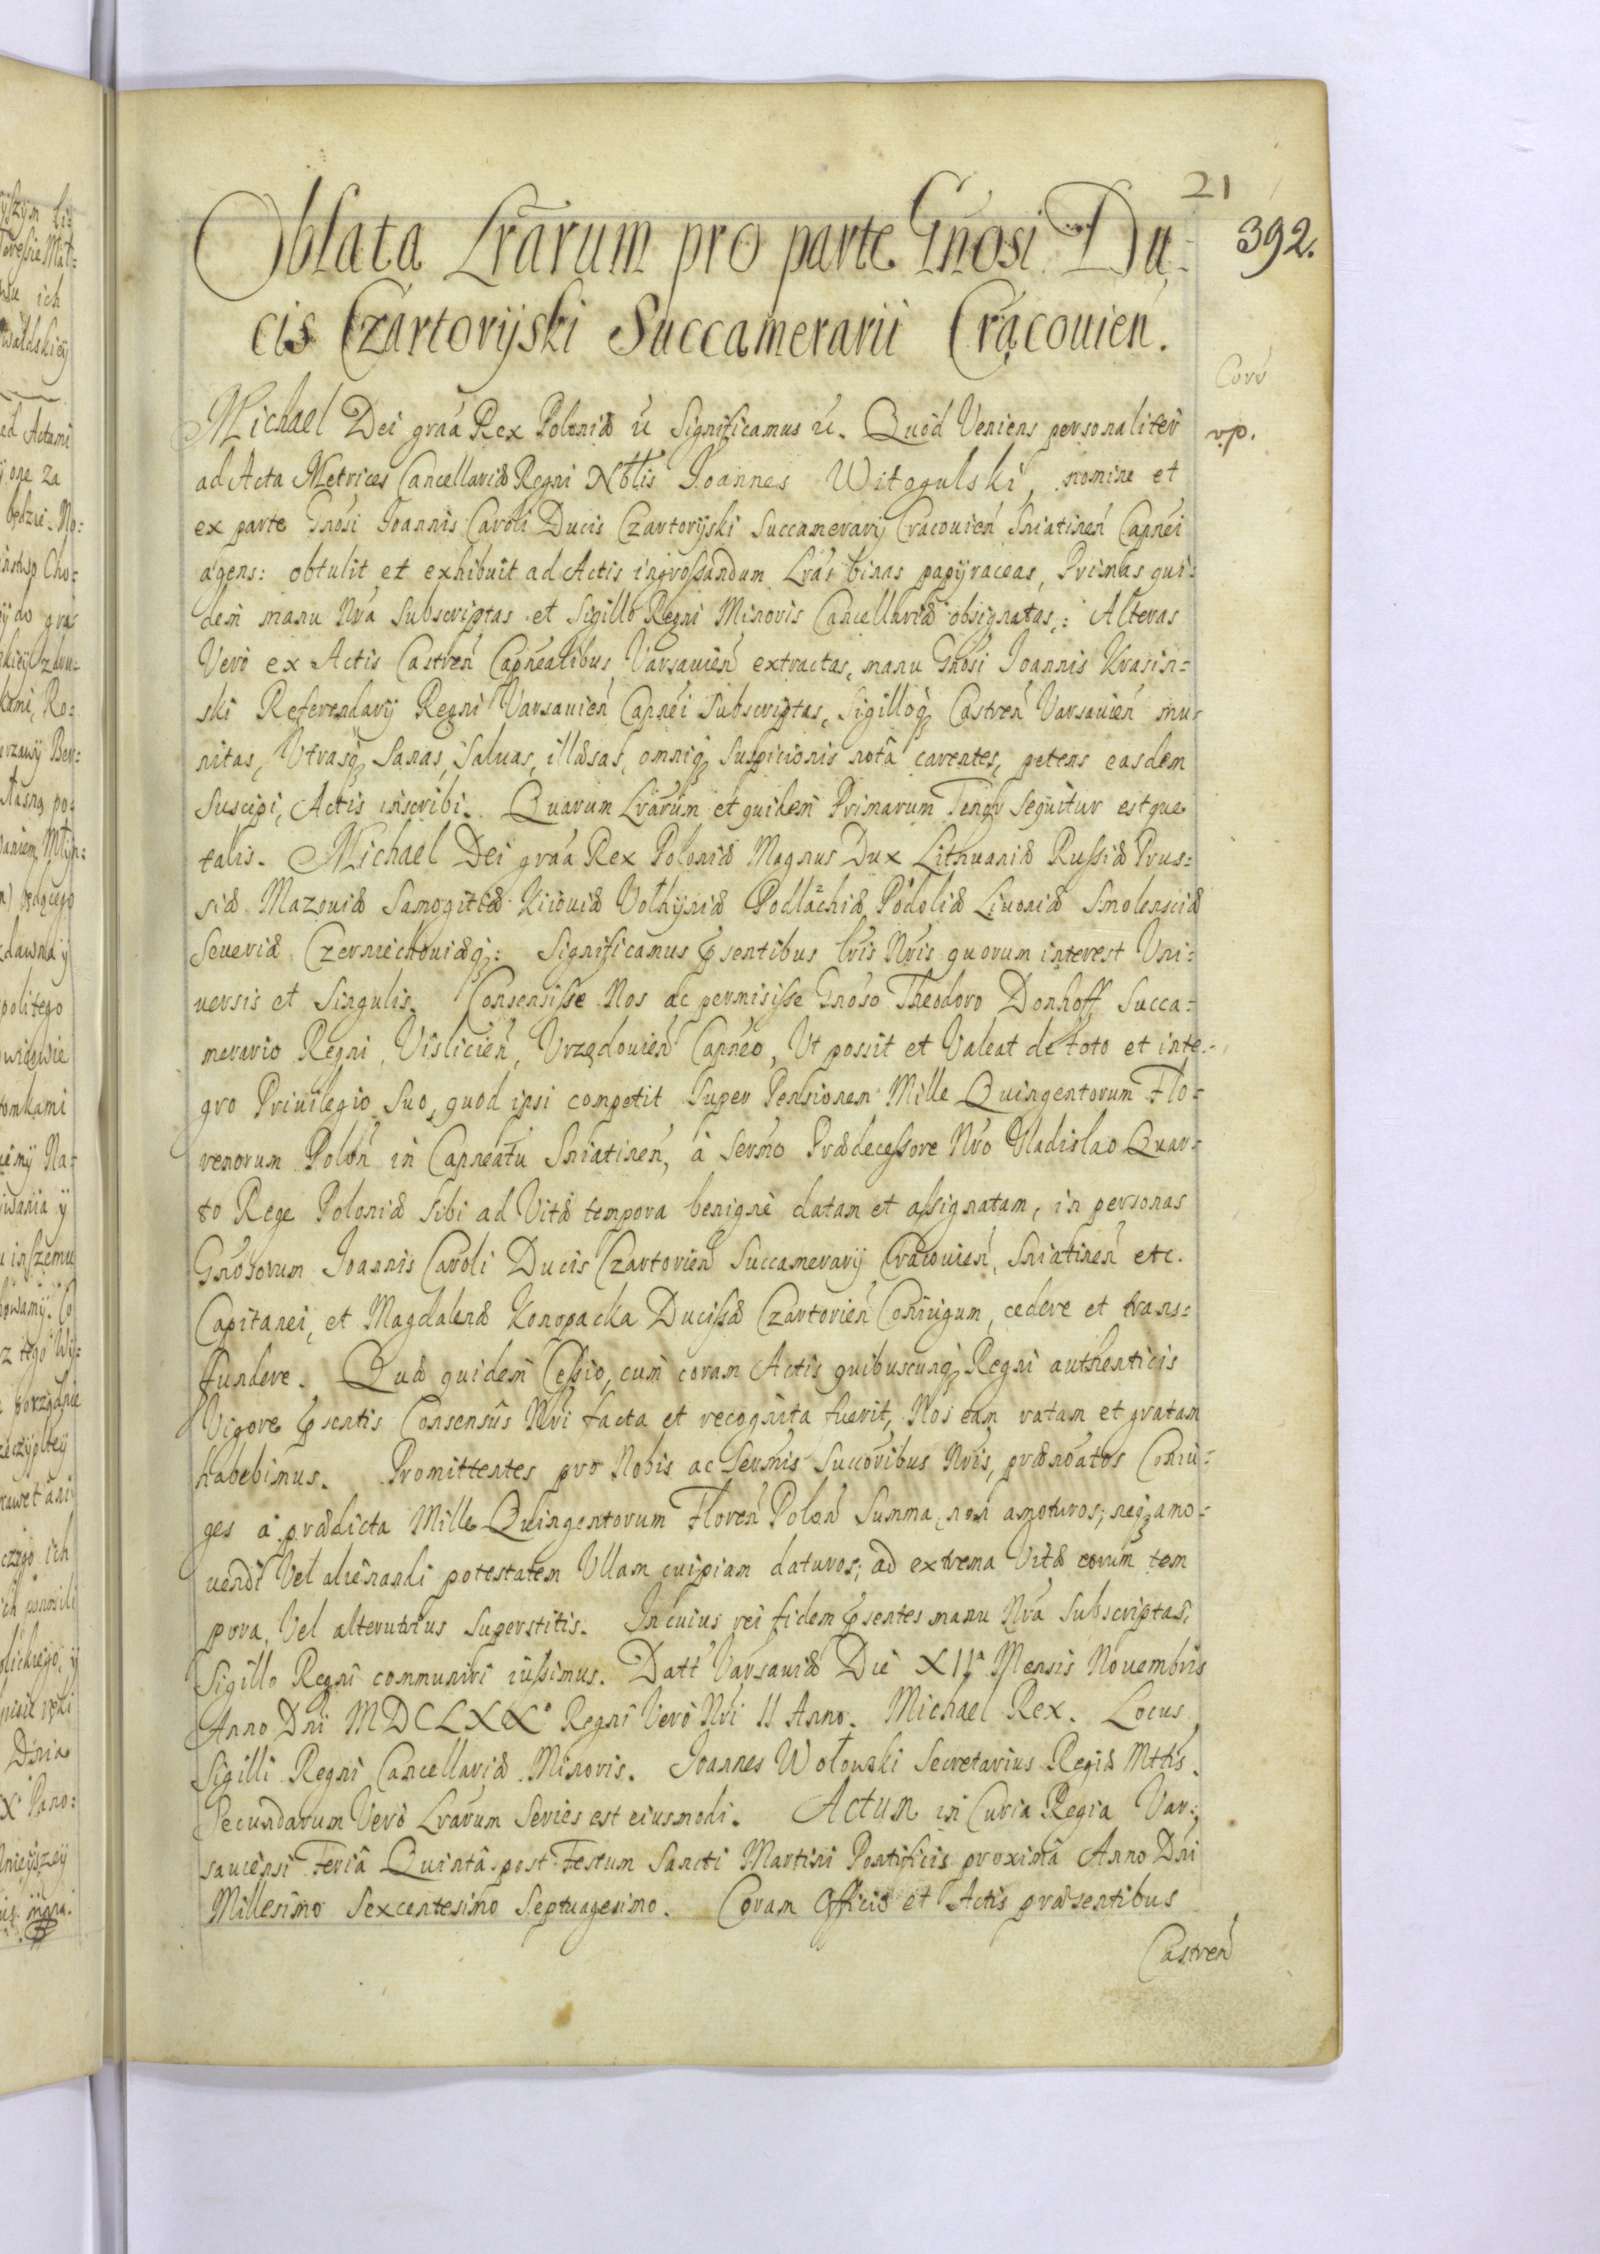 21
392.
Oblata Lrarum pro parte Gnosi Du-
cis Czartoryski Succamerarii Cracouień.
Corr
vp.
Michael Dei graa Rex Poloniæ Significamus Quod Veniens personaliter
ad Acta Metrices Cancellariæ Regni Nblis Joannes Witogulski, nomine et
ex parte Gnosi Joannis Caroli Ducis Czartoryski Succamerarij Cracouień Sniatineń Capnei
agens: obtulit et exhibuit ad Actis ingrossandum Lras binas papyraceas, Primas qui-
dem manu Nra Subscriptas et Sigillo Regni Minoris Cancellariæ obsignatas: Alteras
Vero ex Actis Castreń Capnealibus Varsauień extractas, manu Gnosi Joannis Krasin-
ski Referendarij Regni Varsauień Capnei Subscriptas, Sigilloq Castreń Varsauień mu-
nitas, Utrasq Sanas, Saluas, illæsas, omniq Suspicionis notâ carentes, petens easdem
Suscipi, Actis inscribi. Quarum Lrarum et quidem Primarum Tenor Sequitur estque
talis. Michael Dei graa Rex Poloniæ Magnus Dux Lithuaniæ Russiæ Prus-
siæ Mazouiæ Samogitiæ Kiiouiæ Volhyniæ Podlachiæ Podoliæ Liuoniæ Smolensciæ
Seueriæ Czerniechouiæq: Significamus psentibus lris Nris quorum interest Vni-
uersis et Singulis. Consensisse Nos ac permisisse Gnoso Theodoro Donhoff Succa-
merario Regni, Vislicień, Vrzędouień Capneo, Vt possit et Valeat de toto et inte-
gro Priuilegio Suo, quod ipsi competit Super Pensionem Mille Quingentorum Flo-
renorum Poloń in Capneatu Sniatineń, à Sermo Prædecessore Nro Vladislao Quar-
to Rege Poloniæ Sibi ad Vitæ tempora benigne datam et assignatam, in personas
Gnosorum Joannis Caroli Ducis Czartorień Succamerarij Cracouień, Sniatineń etc.
Capitanei, et Magdalenæ Konopacka Ducissæ Czartorień Coniugum, cedere et trans-
fundere. Quæ quidem Cessio, cum coram Actis quibuscunq Regni authenticis
Vigore psentis Consensûs Nri facta et recognita fuerit, Nos eam ratam et gratam
habebimus. Promittentes pro Nobis ac Sermis Succoribus Nris, prænoatos Coniu-
ges à prædicta Mille Quingentorum Floreń Poloń Summa, non amoturos, neq amo-
uendi Vel alienandi potestatem Ullam cuipiam daturos, ad extrema Vitæ eorum tem
pora, Vel alterutrius Superstitis. In cuius rei fidem psentes manu Nra Subscriptas,
Sigillo Regni communiri iussimus. Datt Varsauiæ Die XII Mensis Nouembris
Anno Dni MDCLXX° Regni Verò Nri II Anno. Michael Rex. Locus
Sigilli Regni Cancellariæ Minoris. Joannes Wołowski Secretarius Regiæ Mttis.
Secundarum Vero Lrarum Series est eiusmodi. Actum in Curia Regia Var-
sauiensi Feriâ Quintâ post Festum Sancti Martini Pontificis proximâ Anno Dni
Millesimo Sexcentesimo Septuagesimo. Coram Officio et Actis præsentibus
Castreń